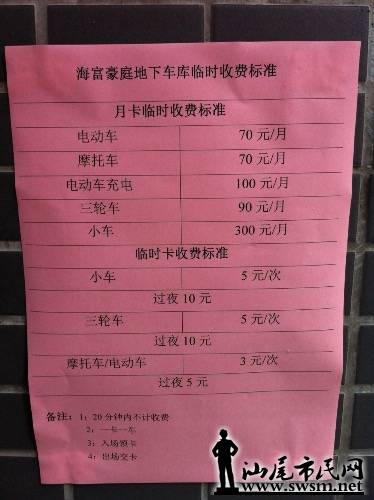 海富豪庭地下车库临时收费标准
月卡临时收费标准
电动车 70 元/月
摩托车 70 元/月
电动车充电 100 元/月
三轮车 90 元/月
小车 300 元/月
临时卡收费标准
小车 5 元/次
过夜 10 元
三轮车 5 元/次
过夜 10 元
摩托车/电动车 3 元/次
过夜 5 元
备注：1：20 分钟内不计收费
2：一卡一车
3：入场领卡
4：出场交卡
汕尾市民网
www.swsm.net